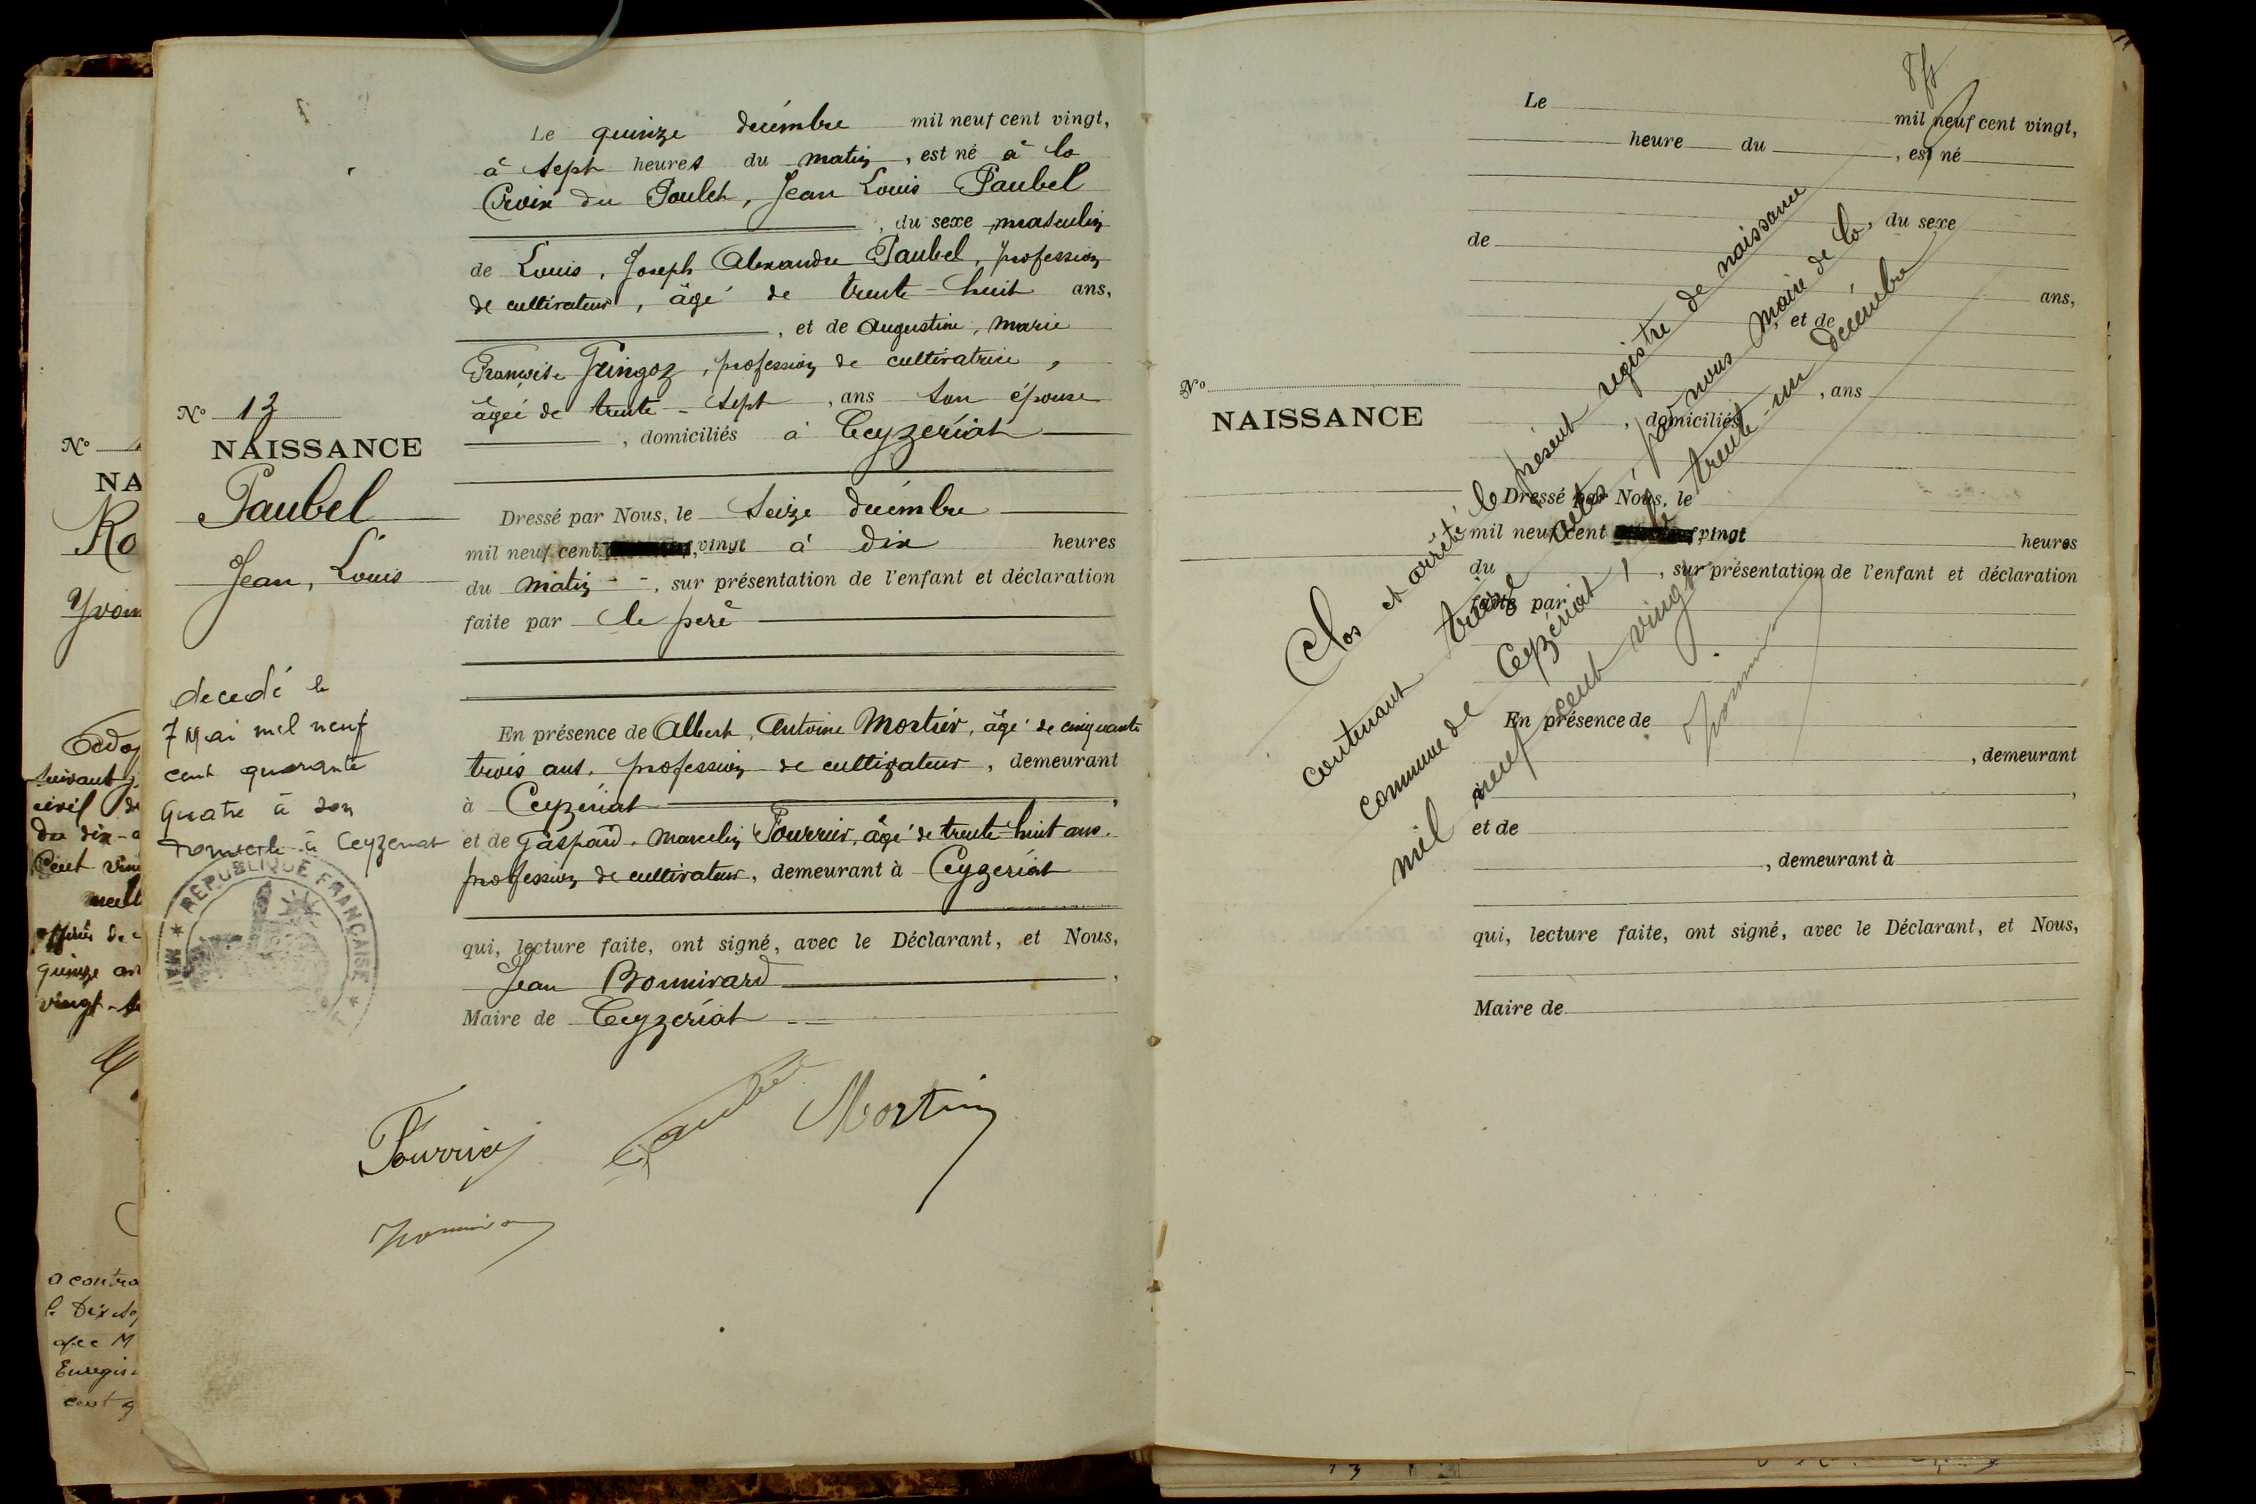 Le quinze décembre mil neuf cent vingt,
à sept heures du matin, est né à la
Croix du Poulet, Jean Louis Paubel
, du sexe masculin
de Louis, Joseph Alexandre Paubel, profession
de cultivateur, âgé de trente-huit ans,
, et de Augustine, Marie
Françoise Gringoz, profession de cultivatrice,
âgée de trente-sept, ans son épouse
, domiciliés à Ceyzériat
No 13
NAISSANCE
Paubel
Jean, Louis
Dressé par Nous, le Seize décembre
mil neuf cent vingt à dix heures
du matin, sur présentation de l'enfant et déclaration
faite par le père
decedé le
7 Mai mil neuf
cent quarante
quatre à son
domicile à Ceyzeriat
REPUBLIQUE FRANÇAISE
En présence de Albert, Antoine Mortier, âgé de cinquante
trois ans, profession de cultivateur, demeurant
à Ceyzériat,
et de Gaspard, Marcelin Fourrier, âgé de trente-huit ans,
profession de cultivateur, demeurant à Ceyzériat
qui, lecture faite, ont signé, avec le Déclarant, et Nous,
Jean Bonnivard,
Maire de Ceyzériat
Fourrier Paubel Mortier
No
NA
Ro
suivant
civil
quinze
a contra
avec M
Le mil neuf cent vingt,
heure du , est né
, du sexe
de
ans,
, et de
, ans
, domiciliés
No
NAISSANCE
Dressé par Nous, le
mil neuf cent vingt heures
du , sur présentation de l'enfant et déclaration
faite par
En présence de
, demeurant
à ,
et de
, demeurant à
qui, lecture faite, ont signé, avec le Déclarant, et Nous,
Maire de
Clos et arrêté le présent registre de naissance
contenant treize actes, par nous Maire de la
commune de Ceyzériat, le trente-un décembre
mil neuf cent vingt.